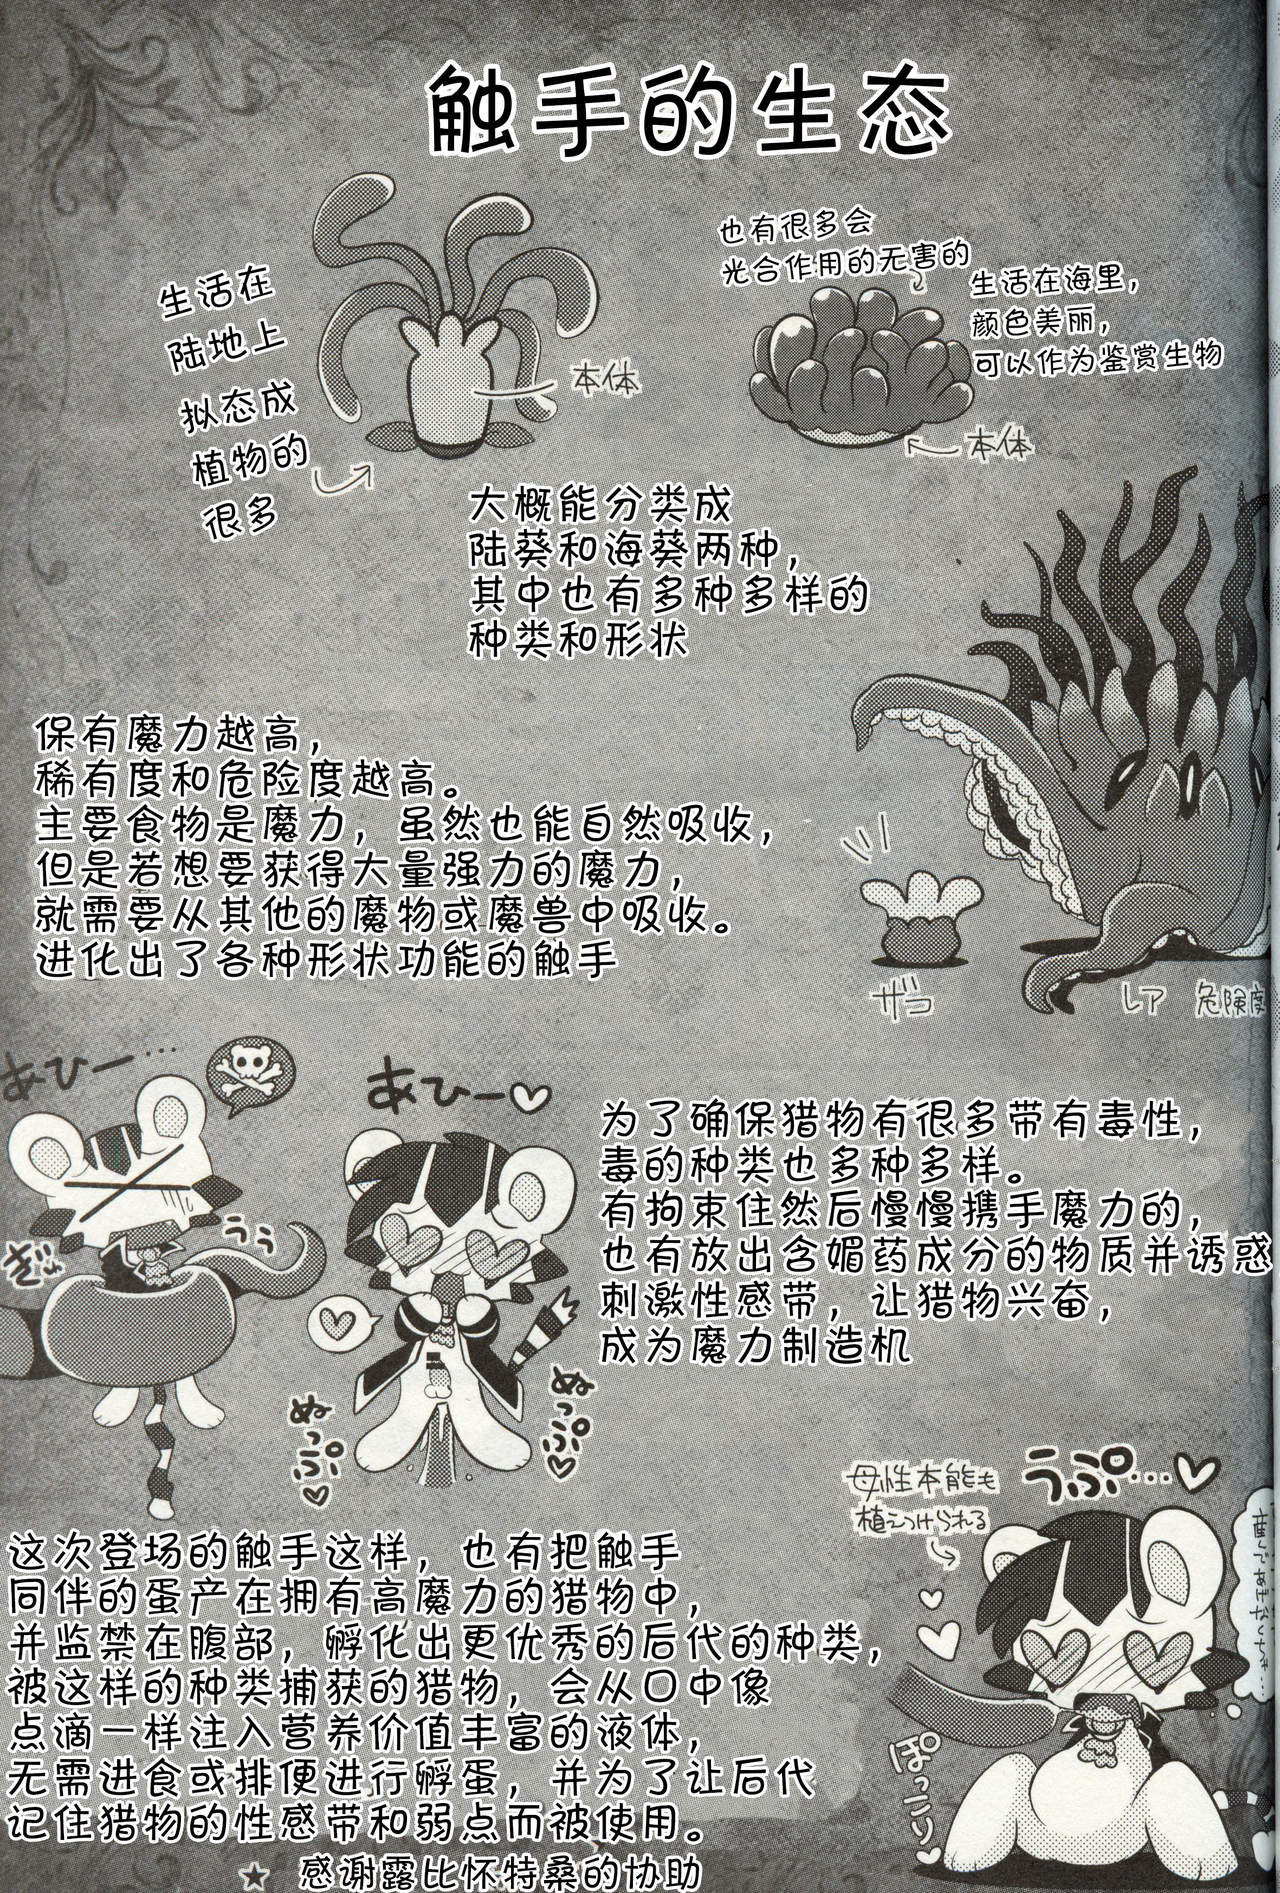 触手的生态
生活在
陆地上
拟态成
植物的
很多
本体
也有很多会
光合作用的无害的
生活在海里，
颜色美丽，
可以作为鉴赏生物
本体
大概能分类成
陆葵和海葵两种，
其中也有多种多样的
种类和形状
保有魔力越高，
稀有度和危险度越高。
主要食物是魔力，虽然也能自然吸收，
但是若想要获得大量强力的魔力，
就需要从其他的魔物或魔兽中吸收。
进化出了各种形状功能的触手
ザコ
レア 危険度
あひー…
あひー♡
ぎゅぃ
うぅ
ぬっぷ♡
ぬっぷ♡
为了确保猎物有很多带有毒性，
毒的种类也多种多样。
有拘束住然后慢慢携手魔力的，
也有放出含媚药成分的物质并诱惑
刺激性感带，让猎物兴奋，
成为魔力制造机
母性本能も
植えつけられる
うぷ…♡
ぽっこり♡
这次登场的触手这样，也有把触手
同伴的蛋产在拥有高魔力的猎物中，
并监禁在腹部，孵化出更优秀的后代的种类，
被这样的种类捕获的猎物，会从口中像
点滴一样注入营养价值丰富的液体，
无需进食或排便进行孵蛋，并为了让后代
记住猎物的性感带和弱点而被使用。
★ 感谢露比怀特桑的协助